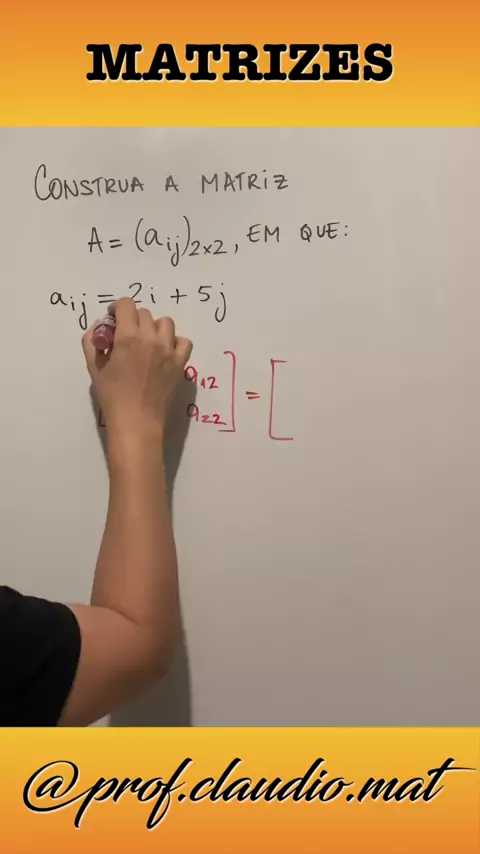 MATRIZES
CONSTRUA A MATRIZ
A = (aij)2×2, EM QUE:
aij = 2i + 5j
a12 ] = [
a22
@prof.claudio.mat